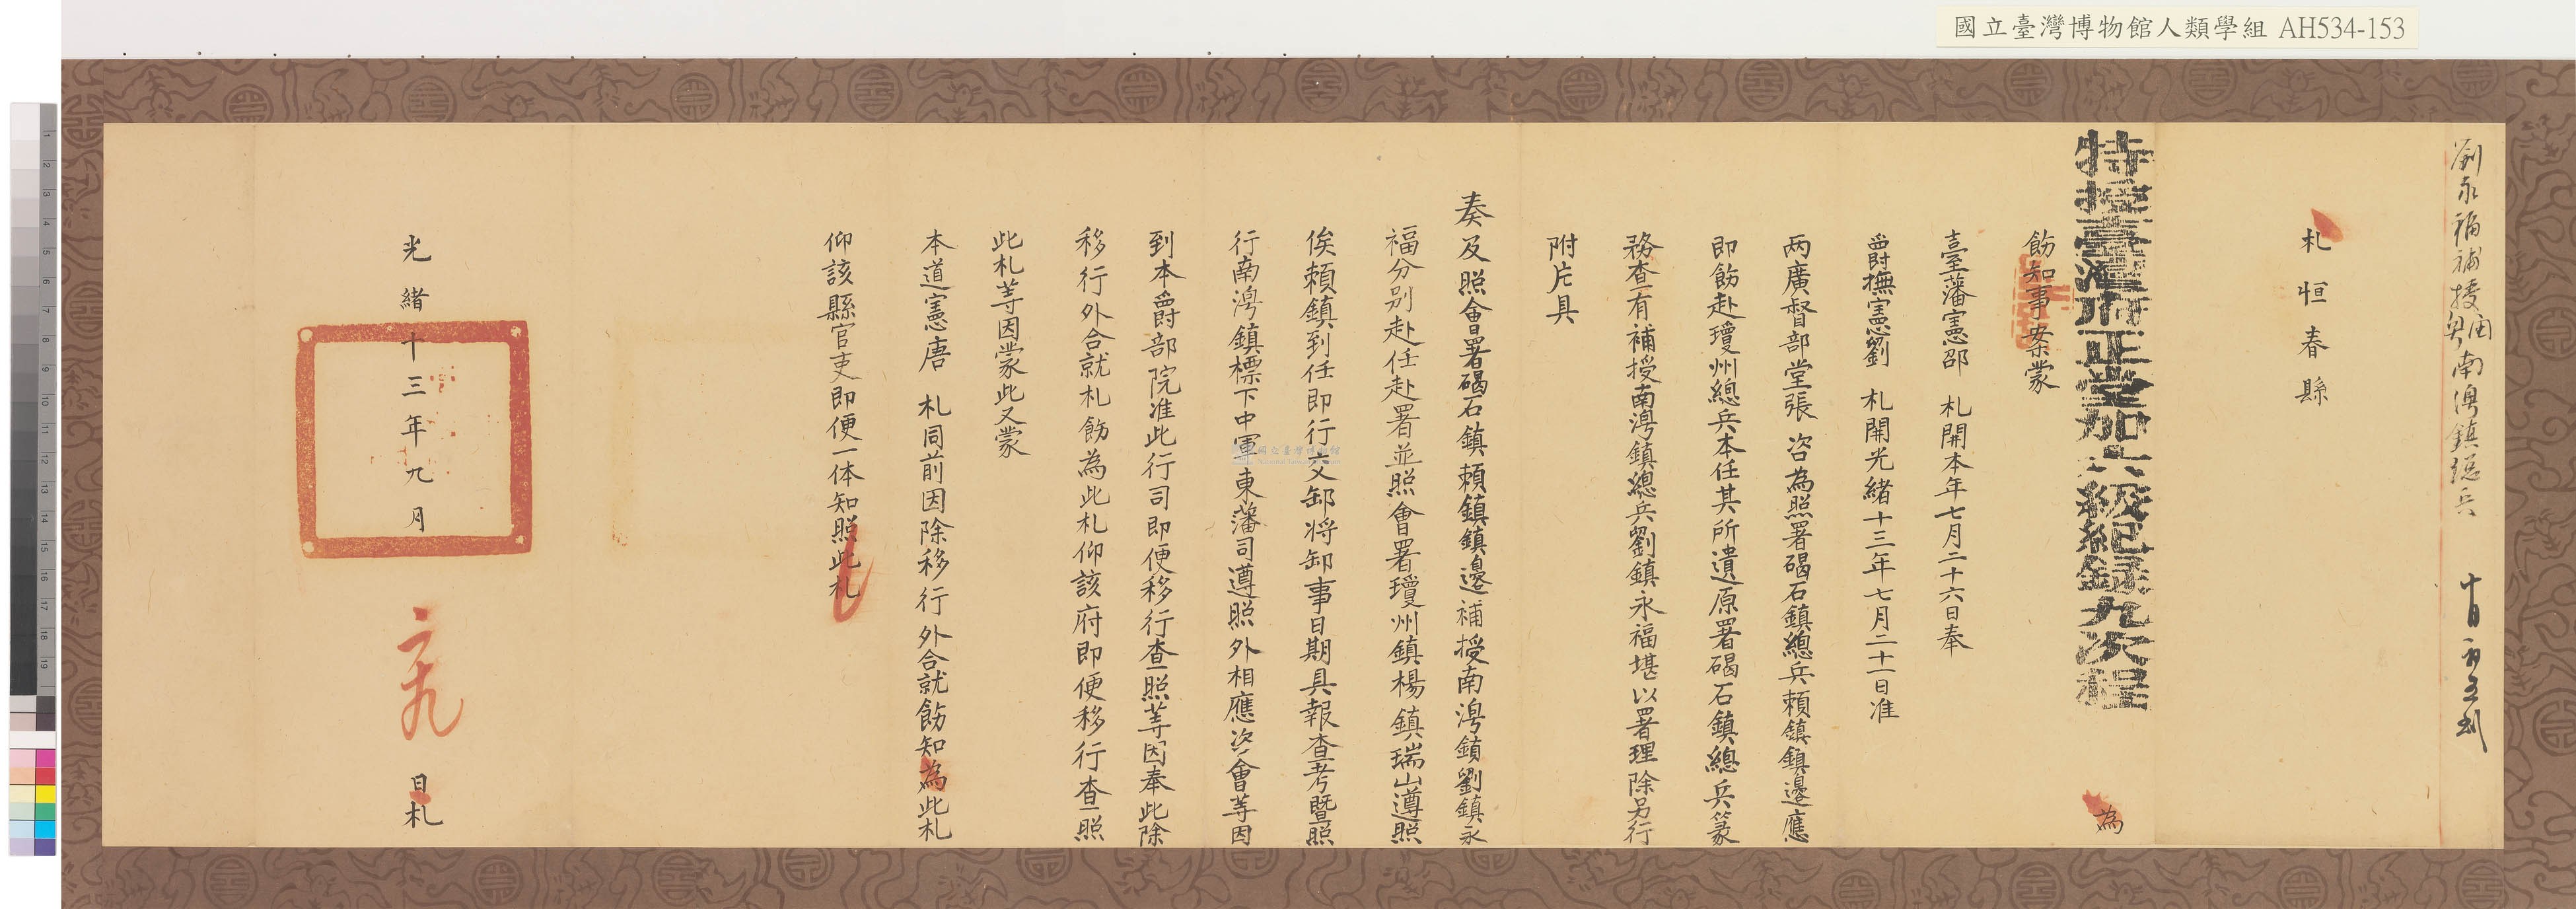 國立臺灣博物館人類學組 AH534-153
劉永福補授閩粵南澳鎮總兵
札恒春縣
特授臺灣府正堂加六級紀錄九次程 為
飭知事案蒙
臺藩憲邵 札開本年七月二十六日奉
爵撫憲劉 札開光緒十三年七月二十一日准
両廣督部堂張 咨為照署碣石鎮總兵賴鎮鎮邊應
即飭赴瓊州總兵本任其所遺原署碣石鎮總兵篆
務查有補授南澚鎮總兵劉鎮永福堪以署理除另行
附片具
奏及照會署碣石鎮賴鎮鎮邊補授南澚鎮劉鎮永
福分別赴任赴署並照會署瓊州鎮楊鎮瑞山遵照
俟賴鎮到任即行交卸将卸事日期具報查考暨照
行南澚鎮標下中軍東藩司遵照外相應咨會等因
到本爵部院准此行司即便移行查照等因奉此除
移行外合就札飭為此札仰該府即便移行查照
此札等因蒙此又蒙
本道憲唐 札同前因除移行外合就飭知為此札
仰該縣官吏即便一体知照此札
光緒十三年九月 日札